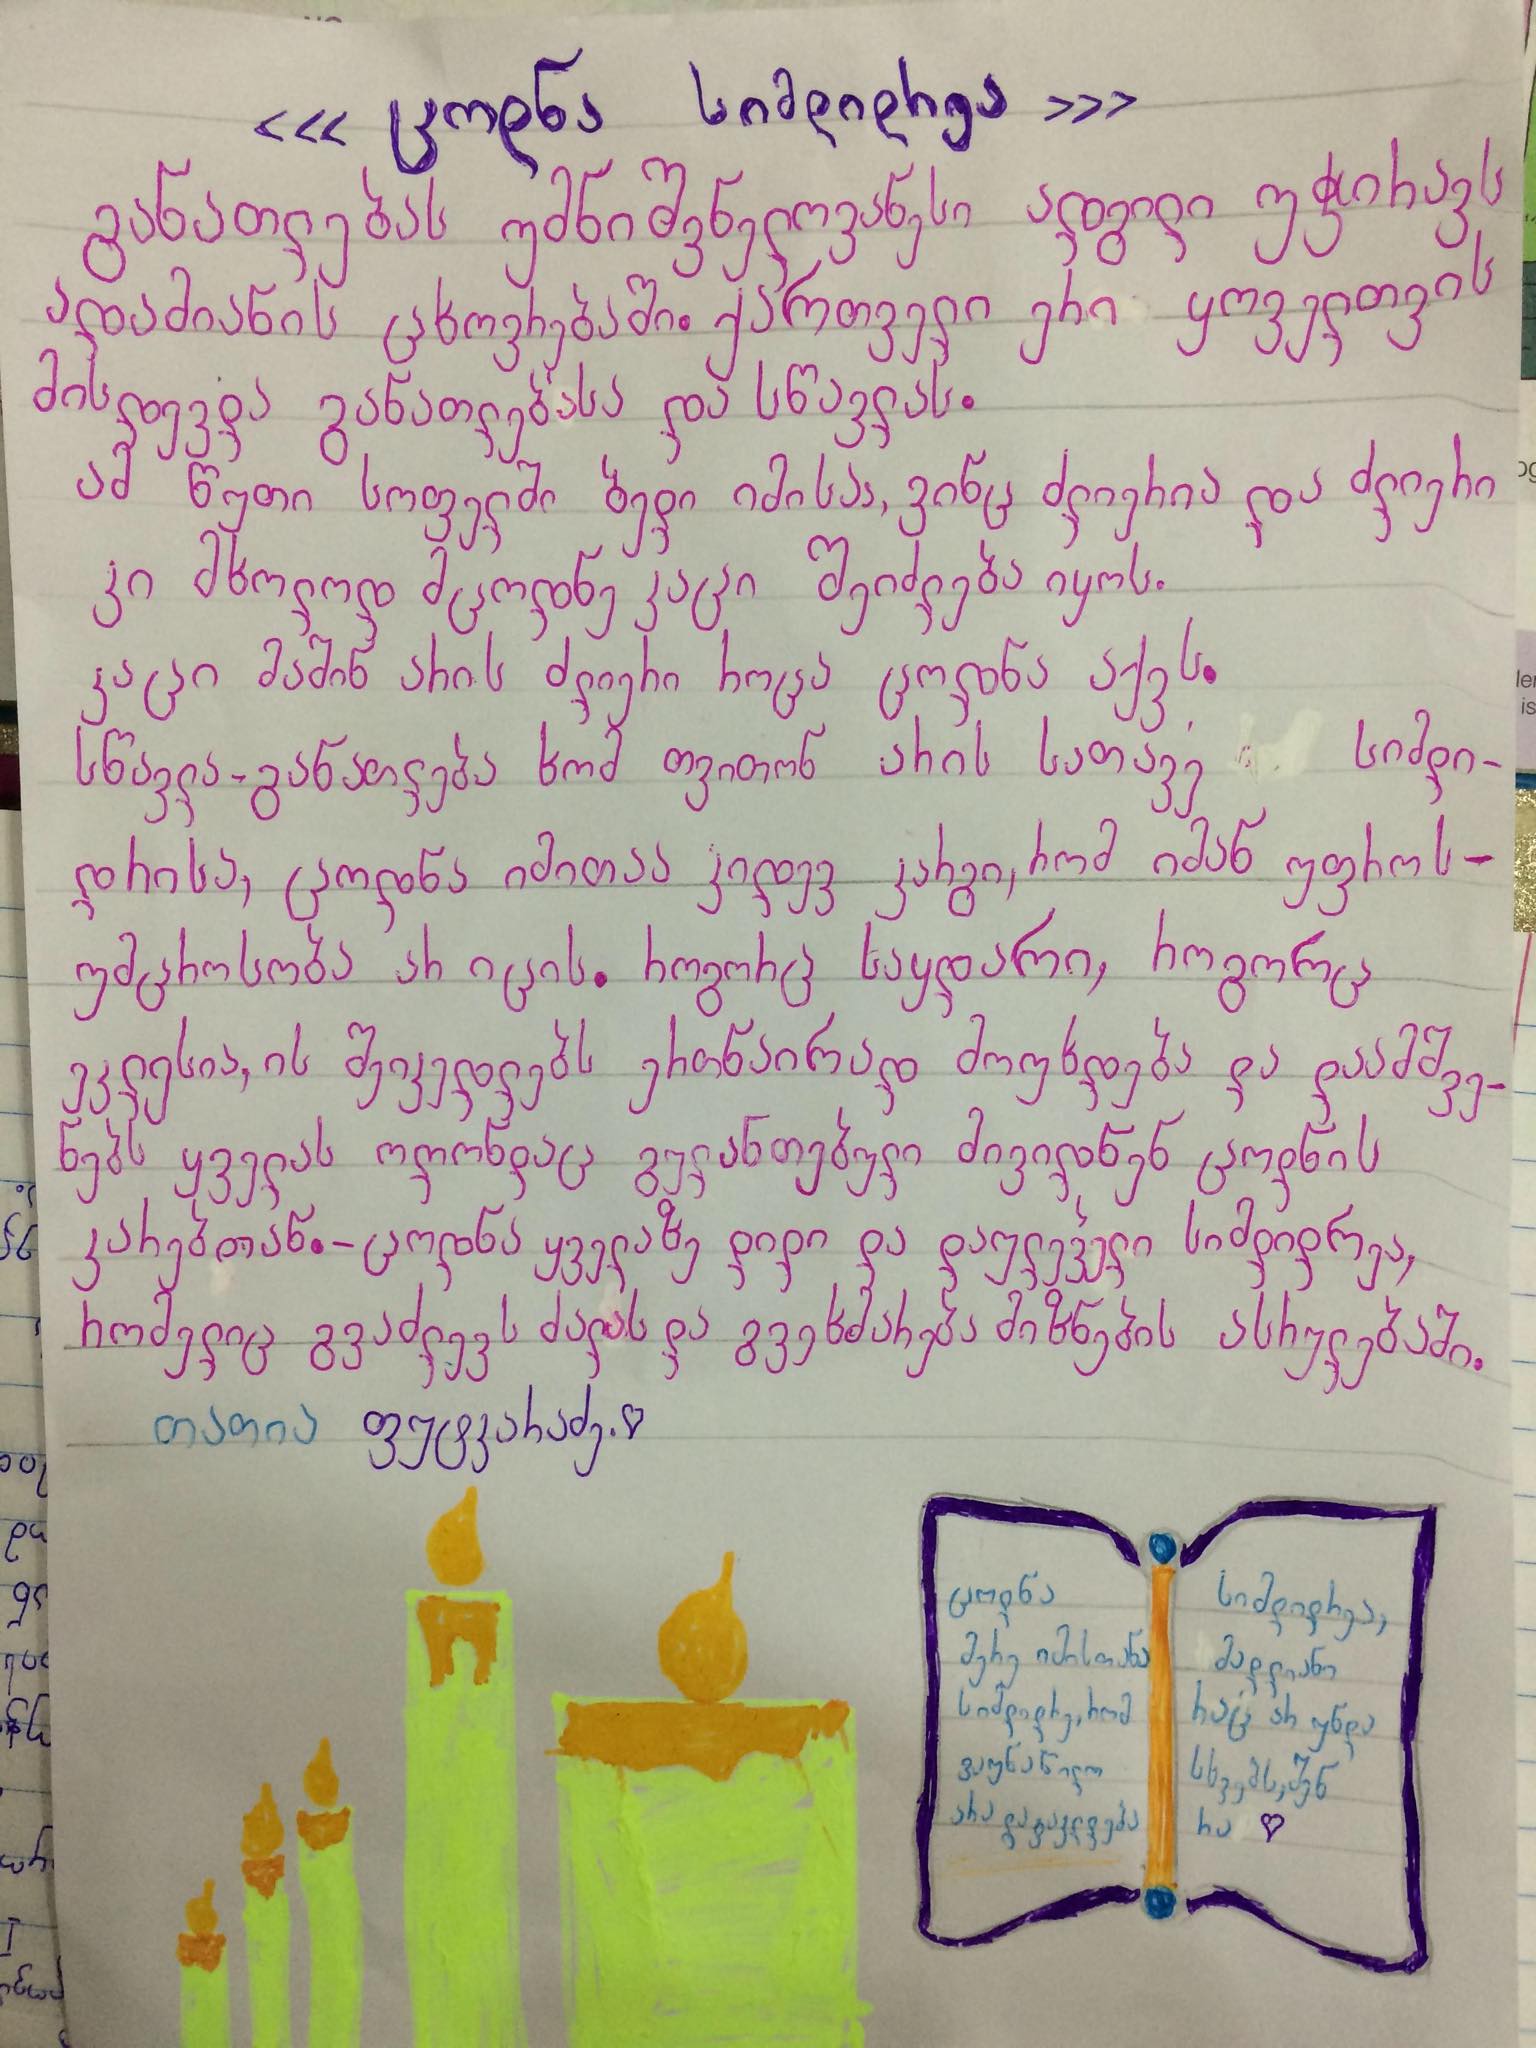 <<< ცოდნა სიმდიდრეა >>>
განათლებას უმნიშვნელოვანესი ადგილი უჭირავს
ადამიანის ცხოვრებაში. ქართველი ერი ყოველთვის
მისდევდა განათლებასა და სწავლას.
ამ წუთი სოფელში ბედი იმისაა, ვინც ძლიერია და ძლიერი
კი მხოლოდ მცოდნე კაცი შეიძლება იყოს.
კაცი მაშინ არის ძლიერი როცა ცოდნა აქვს.
სწავლა-განათლება ხომ თვითონ არის სათავე სიმდი-
დრისა, ცოდნა იმითაა კიდევ კარგი, რომ იმან უფროს-
უმცროსობა არ იცის. როგორც საყდარი, როგორც
ეკლესია, ის შეიკედლებს ერთნაირად მოუხდება და დაამშვე-
ნებს ყველას ოღონდაც გულანთებული მივიდნენ ცოდნის
კარებთან.-ცოდნა ყველაზე დიდი და დაულეველი სიმდიდრეა,
რომელიც გვაძლევს ძალას და გვეხმარება მიზნების ასრულებაში.
თათია ფუტკარაძე.♡
ცოდნა სიმდიდრეა,
მერე იმისთანა მადლიანი
სიმდიდრე, რომ რაც არ უნდა
გაუნაწილო სხვებს, შენ
არა დაგაკლდება რა ♡